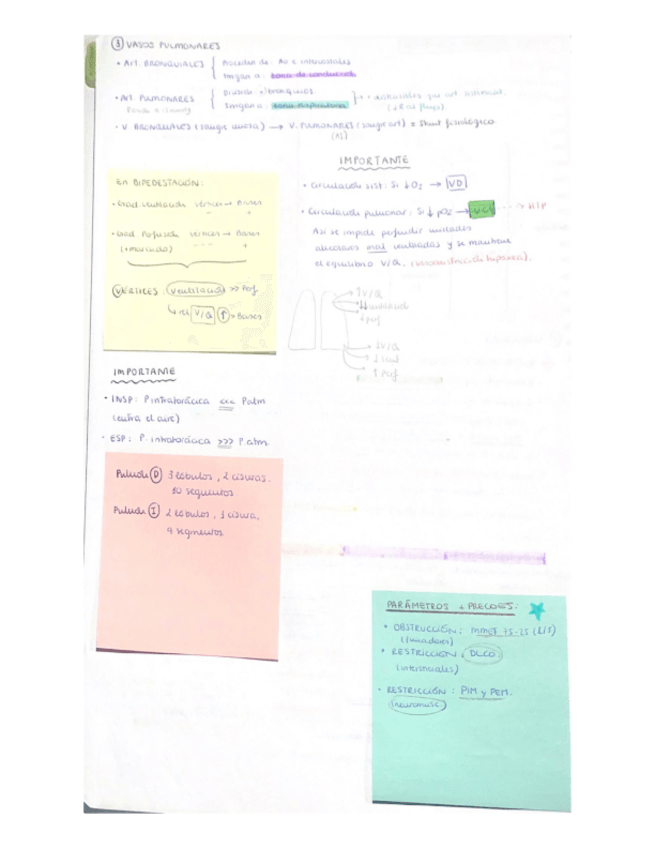 ③ VASOS PULMONARES
• Art. BRONQUIALES { Proceden de: Ao e intercostales
Irrigan a: zona de conducción
• Art. PULMONARES { Dividido c/bronquios.
Irrigan a: zona respiratoria
(↓R al flujo).
• V. BRONQUIALES (sangre venosa) → V. PULMONARES (sangre art) = Shunt fisiológico
En BIPEDESTACIÓN:
• Grad. ventilación vértices → Bases
- +
• Grad. Perfusión vértices → Bases
(+marcado) --- +
VÉRTICES: ventilación >> Perf
V/Q ↑ > Bases
IMPORTANTE
• circulación sist: Si ↓O2 → VD
• circulación pulmonar: Si ↓pO2 → VC → HTP
Así se impide perfundir unidades
alveolares mal ventiladas y se mantiene
el equilibrio V/Q. (vasoconstricción hipóxica).
↑V/Q
↓ventilación
↓perf
↓V/Q
↓vent
↑perf
IMPORTANTE
• INSP: P intratorácica <<< Patm
(entra el aire)
• ESP: P. intratorácica >>> P. atm.
Pulmón D 3 lóbulos, 2 cisuras,
10 segmentos
Pulmón I 2 lóbulos, 1 cisura,
9 segmentos
PARÁMETROS + PRECOCES:
• OBSTRUCCIÓN: MMEF 75-25 (L/S)
(fumadores)
• RESTRICCIÓN: DLCO
(intersticiales)
• RESTRICCIÓN: PIM y PEM.
(neuromusc.)